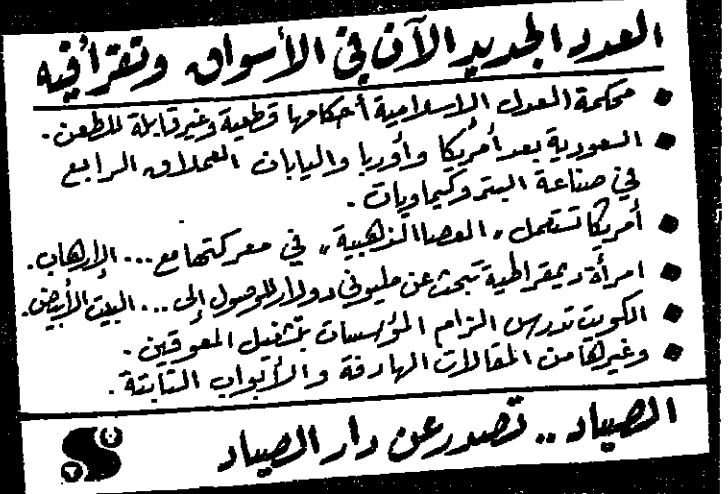 العدد الجديد الآن في الأسواق وتقرأ فيه
محكمة العدل الاسلامية أحكامها قطعية وغير قابلة للطعن.
السعودية بعد أمريكا وأوربا واليابان العملاق الرابع
في صناعة البتروكيماويات.
أمريكا تستعمل "العصا الذهبية" في معركتها مع... الإرهاب.
امرأة ديمقراطية تبحث عن مليوني دولار للوصول إلى... البيت الأبيض.
الكويت تدرس الزام المؤسسات بتشغيل المعوقين.
وغيرها من المقالات الهادفة والأبواب الثابتة.
الصياد.. تصدر عن دار الصياد